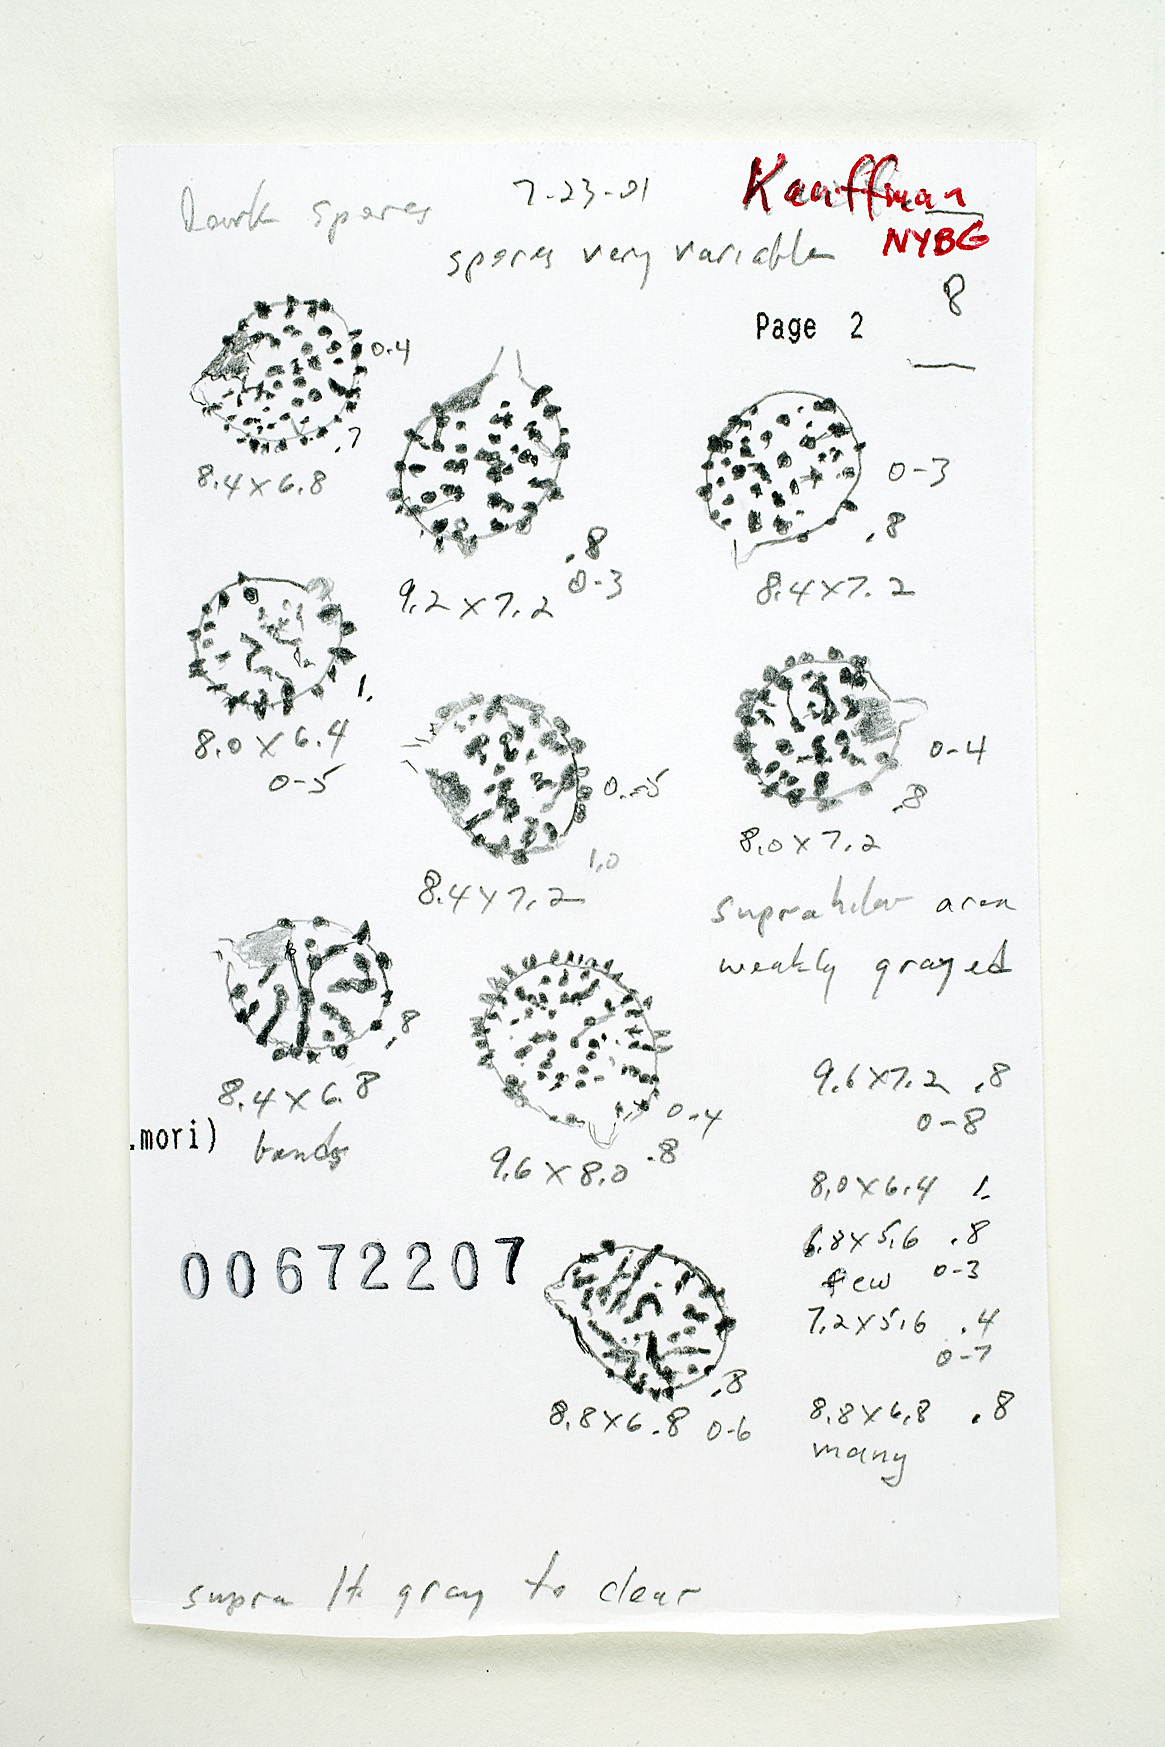 Dark spores
7-23-01
Kauffman
NYBG
spores very variable
8
Page 2
0-4
.7
8.4 x 6.8
.8
0-3
9.2 x 7.2
0-3
.8
8.4 x 7.2
1.
8.0 x 6.4
0-5
0-5
1.0
8.4 x 7.2
0-4
.8
8.0 x 7.2
suprahilar area
weakly grayed
.8
8.4 x 6.8
bands
.mori)
0-4
.8
9.6 x 8.0
9.6 x 7.2 .8
0-8
8.0 x 6.4 1.
6.8 x 5.6 .8
few 0-3
7.2 x 5.6 .4
0-7
8.8 x 6.8 .8
many
00672207
.8
8.8 x 6.8 0-6
supra lt gray to clear